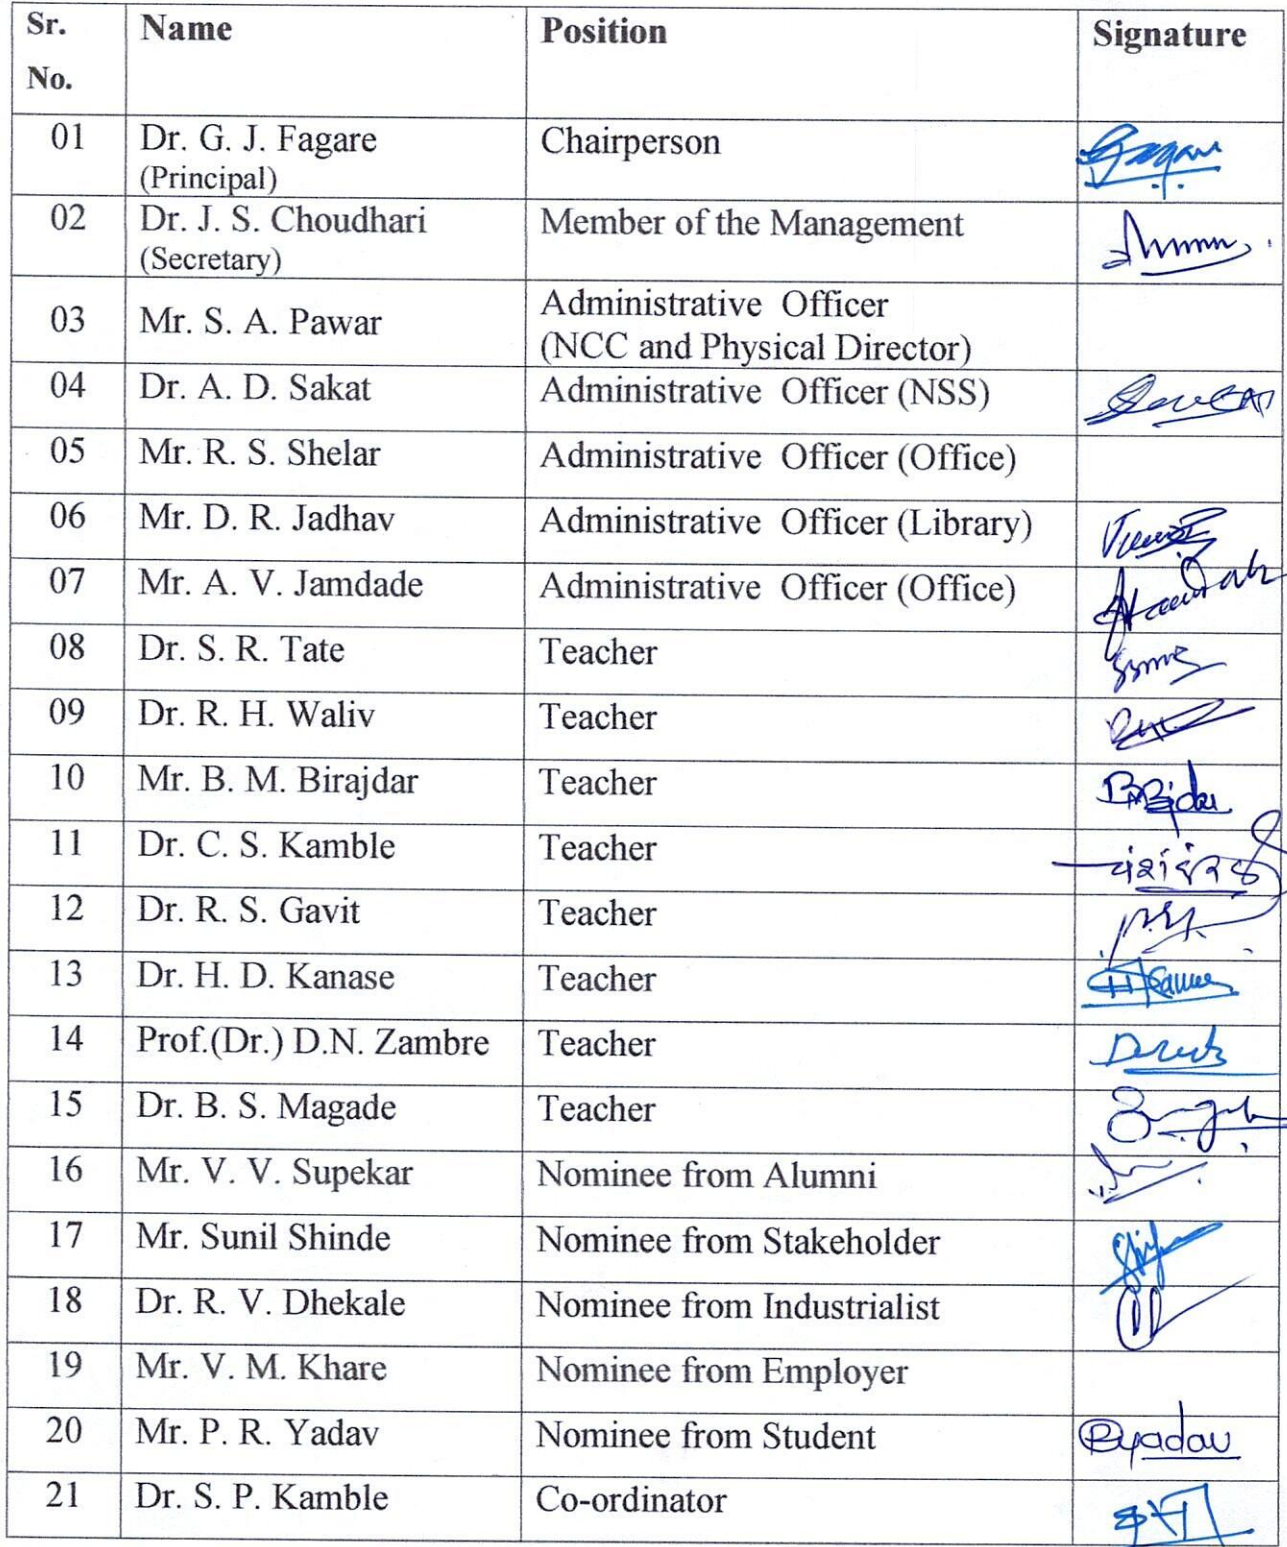 Sr. No. Name Position Signature
01 Dr. G. J. Fagare Chairperson
(Principal)
02 Dr. J. S. Choudhari Member of the Management
(Secretary)
03 Mr. S. A. Pawar Administrative Officer
(NCC and Physical Director)
04 Dr. A. D. Sakat Administrative Officer (NSS)
05 Mr. R. S. Shelar Administrative Officer (Office)
06 Mr. D. R. Jadhav Administrative Officer (Library)
07 Mr. A. V. Jamdade Administrative Officer (Office)
08 Dr. S. R. Tate Teacher
09 Dr. R. H. Waliv Teacher
10 Mr. B. M. Birajdar Teacher
11 Dr. C. S. Kamble Teacher
12 Dr. R. S. Gavit Teacher
13 Dr. H. D. Kanase Teacher
14 Prof.(Dr.) D.N. Zambre Teacher
15 Dr. B. S. Magade Teacher
16 Mr. V. V. Supekar Nominee from Alumni
17 Mr. Sunil Shinde Nominee from Stakeholder
18 Dr. R. V. Dhekale Nominee from Industrialist
19 Mr. V. M. Khare Nominee from Employer
20 Mr. P. R. Yadav Nominee from Student Pyadav
21 Dr. S. P. Kamble Co-ordinator